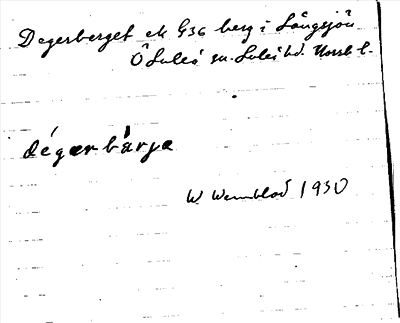 Degerberget ek G36 berg i Långsjön
ÖLuleå sn. Luleå hd. Norrb l.
dégerbärje
W Wennblad 1930